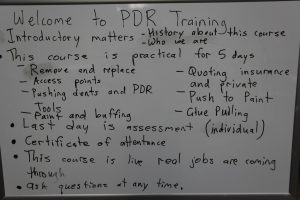 Welcome to PDR Training
Introductory matters - History about this course
- Who we are
• This course is practical for 5 days
- Remove and replace
- Access points
- Pushing dents and PDR
Tools
- Paint and buffing
- Quoting insurance
and private
- Push to Paint
- Glue Pulling
• Last day is assessment (individual)
• Certificate of attentance
• This course is live real jobs are coming
through
• ask questions at any time.